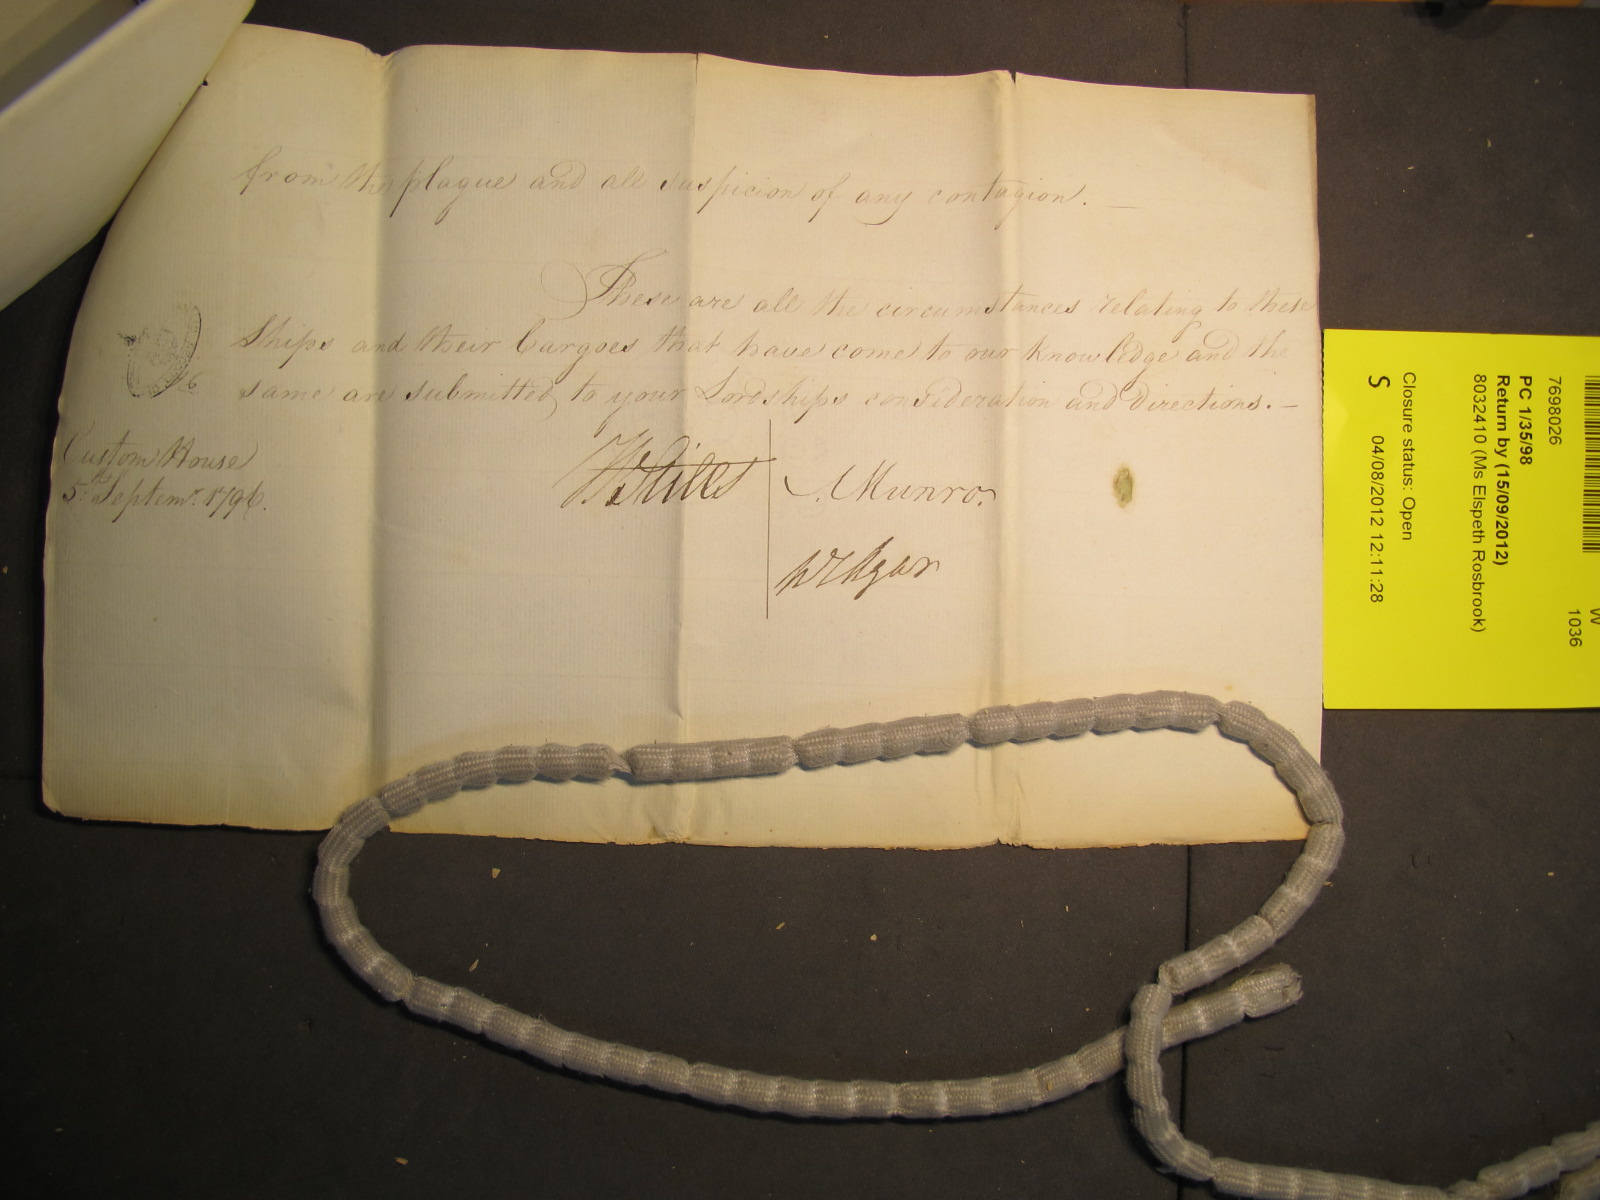 from the plague and all suspicion of any contagion. —
These are all the circumstances relating to these
Ships and their Cargoes that have come to our knowledge and the
same are submitted to your Lordships consideration and directions. —
Custom House
5th Septemr. 1796.
W Stiles
A. Munro.
Wm Agar
W
1036
7698026
PC 1/35/98
Return by (15/09/2012)
8032410 (Ms Elspeth Rosbrook)
Closure status: Open
S 04/08/2012 12:11:28